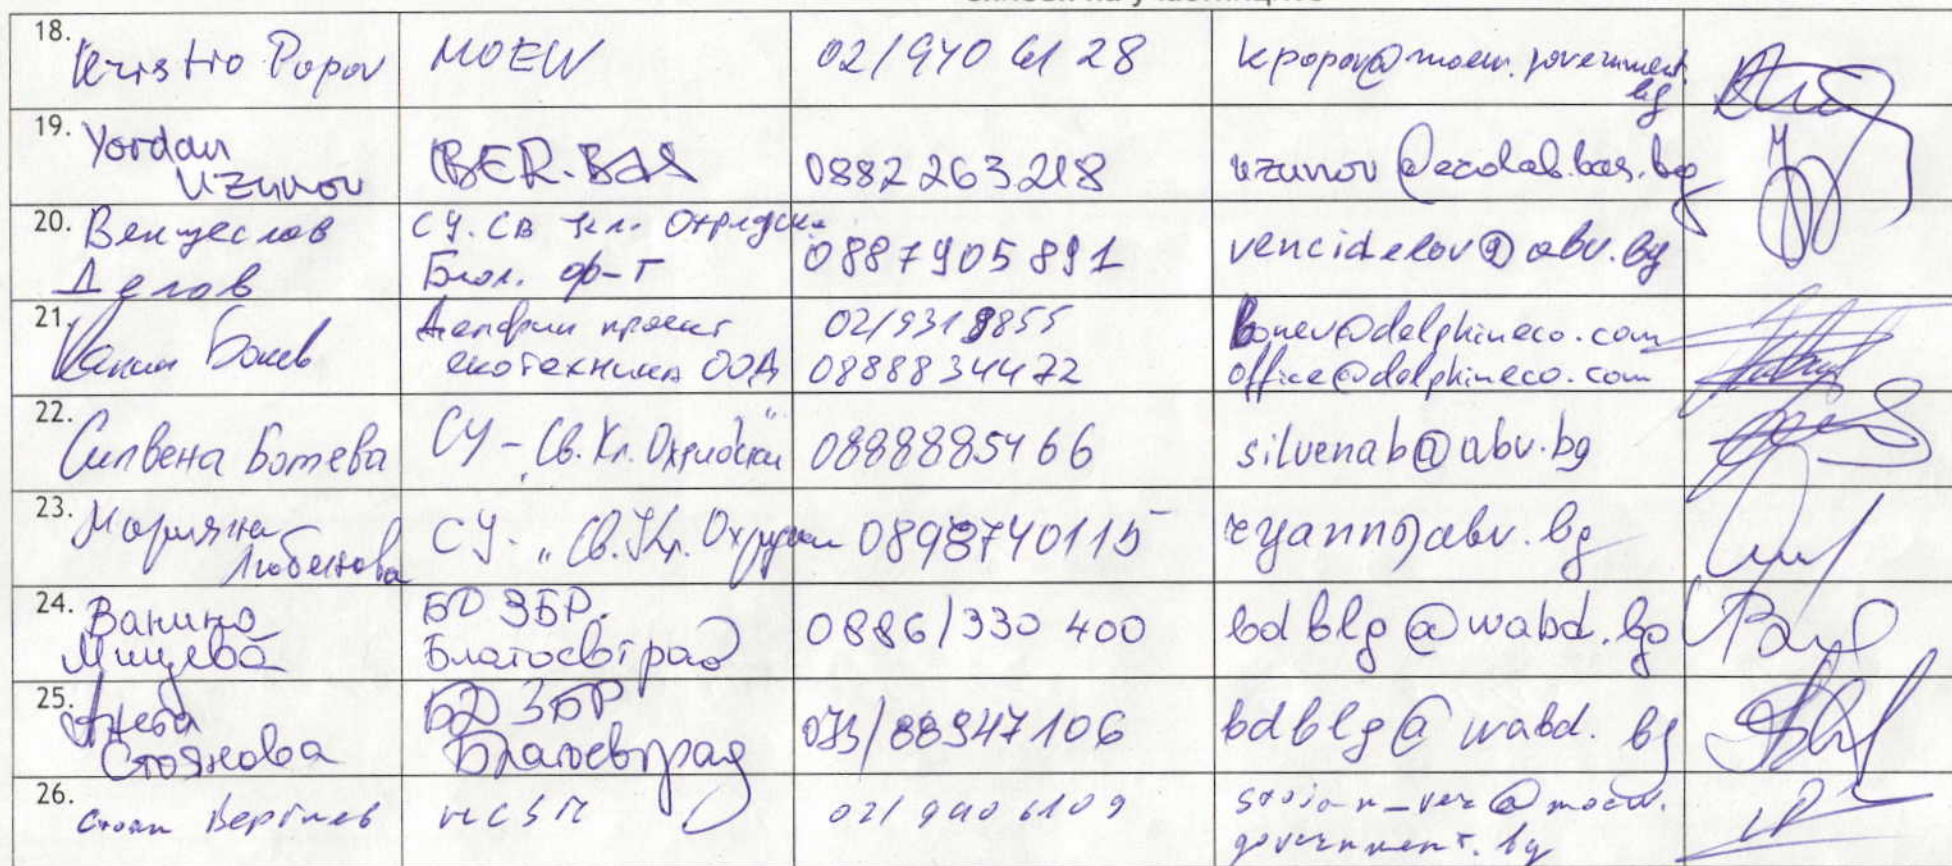 18. Kristio Popov MOEW 02/940 61 28 kpopov@moew.government.
bg
19. Yordan
Uzunov BER-BAS 0882 263 218 uzunov@ecolab.bas.bg
20. Венцеслав СУ. Св Кл. Охридски
Делов Биол. ф-т 0887905891 vencidelov@abv.bg
21. Бонев Делфин проект 02/9318855 bonev@delphineco.com
екотехника ООД 0888834472 office@delphineco.com
22. Силвена Ботева СУ - "Св. Кл. Охридски" 0888885466 silvenab@abv.bg
23. Марияна
Любенова СУ - „Св. Кл. Охридски 0898740115 ryann@abv.bg
24. Ванина БД ЗБР.
Мицева Благоевград 0886/330 400 bdblg@wabd.bg
25. БД ЗБР
Стоянова Благоевград 073/88947106 bdblg@wabd.bg
26. Стоян 02/940 6109 stoian_ver@moew.
government.bg